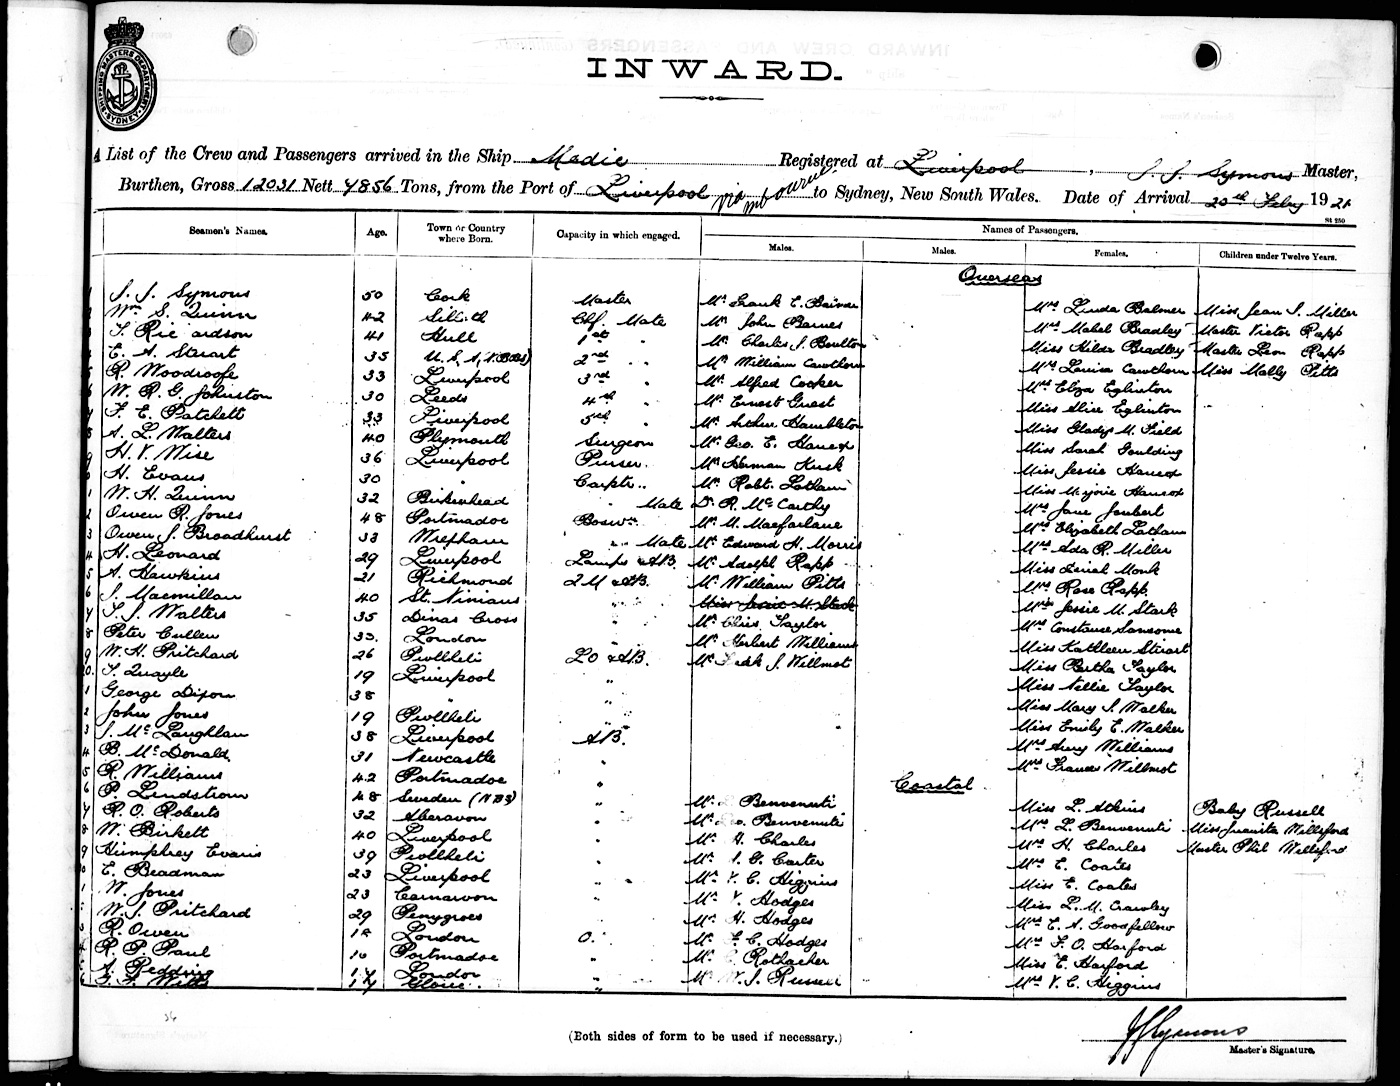 SHIPPING MASTERS DEPARTMENT SYDNEY
INWARD.
A List of the Crew and Passengers arrived in the Ship Medic Registered at Liverpool, J. J. Symons Master,
Burthen, Gross 12031 Nett 7856 Tons, from the Port of Liverpool via Melbourne to Sydney, New South Wales. Date of Arrival 20th Feby 1921
St 250
Seamen's Names. Age. Town or Country where Born. Capacity in which engaged. Names of Passengers.
Males. Males. Females. Children under Twelve Years.
Overseas
J. J. Symons 50 Cork Master Mr Frank E. Mrs Linda Balmer Miss Jean S. Miller
Wm S. Quinn 42 Silloth Chf. Mate Mr John Barnes Mrs Mabel Bradley Master Victor Rapp
T. Ric ardson 41 Hull 1st " Mr Charles J. Boulton Miss Hilda Bradley Master Leon Rapp
E. A. Stuart 35 U.S.A. 2nd " Mr William Cawthorn Mrs Louisa Cawthorn Miss Mally Pitts
R. Woodroofe 33 Liverpool 3rd " Mr Alfred Cooper Mrs Eliza Eglinton
W. R. G. Johnston 30 Leeds 4th " Mr Ernest Guest Miss Alice Eglinton
F. E. Patchett 33 Liverpool 5th " Mr Arthur Hambleton Miss Gladys M. Field
A. L. Walters 40 Plymouth Surgeon Mr Geo. E. Hancox Miss Sarah Goulding
H. V. Wise 36 Liverpool Purser. Mr Herman Kusk Miss Jessie Hancox
H. Evans 30 " Carptr. Mr Robt. Latham Miss Marjorie Hancox
W. H. Quinn 32 Birkenhead " Mate Dr R. McCarthy Mrs Jane Joubert
Owen R. Jones 48 Portmadoc Boswn Mr M. Macfarlane Mrs Elizabeth Latham
Owen J. Broadhurst 33 Wrexham " Mate Mr Edward H. Morris Mrs Ada R. Miller
H. Leonard 29 Liverpool Lamps & AB. Mr Adolph Rapp Miss Monk
A. Hawkins 21 Richmond 2M & AB. Mr William Pitts Mrs Rose Rapp.
J. Macmillan 40 St. Ninians " Miss Jessie M. Stark Mrs Jessie M. Stark
T. J. Walters 35 Dinas Cross " Mr Chris. Taylor Mrs Constance Sansome
Peter Cullen 33. London " Mr Herbert Williams Miss Kathleen Stuart
W. H. Pritchard 26 Pwllheli LO & AB. Mr J. Willmot Miss Bertha Taylor
T. Quayle 19 Liverpool " Miss Nellie Taylor
George Dixon 38 " " Miss Mary J. Walker
John Jones 19 Pwllheli " Miss Emily E. Walker
J. McLaughlan 38 Liverpool AB. Mrs Amy Williams
B. McDonald. 31 Newcastle " Mrs Frances Willmot
R. Williams 42 Portmadoc " Coastal
P. Lindstrom 48 Sweden " Mr Benvenuti Miss L. Atkins Baby Russell
R. O. Roberts 32 Aberavon " Mr Benvenuti Mrs L. Benvenuti Miss Juanita Willeford
W. Birkett 40 Liverpool " Mr H. Charles Mrs H. Charles Master Phil Willeford
Humphrey Evans 39 Pwllheli " Mr G. Carter Mrs E. Coates
E. Beadman 23 Liverpool " Mr V. C. Higgins Miss E. Coates
W. Jones 23 Carnarvon " Mr V. Hodges Miss L. M. Crawley
W. J. Pritchard 29 Penygroes " Mr H. Hodges Mrs E. A. Goodfellow
R. Owen London O. Mr C. Hodges Mrs F. O. Harford
R. P. Paul Portmadoc " Mr Rothacher Miss E. Harford
A. Redding 17 London " Mr W. J. Russell Mrs V. C. Higgins
Witts 17 "
36
(Both sides of form to be used if necessary.)
JJSymons
Master's Signature.